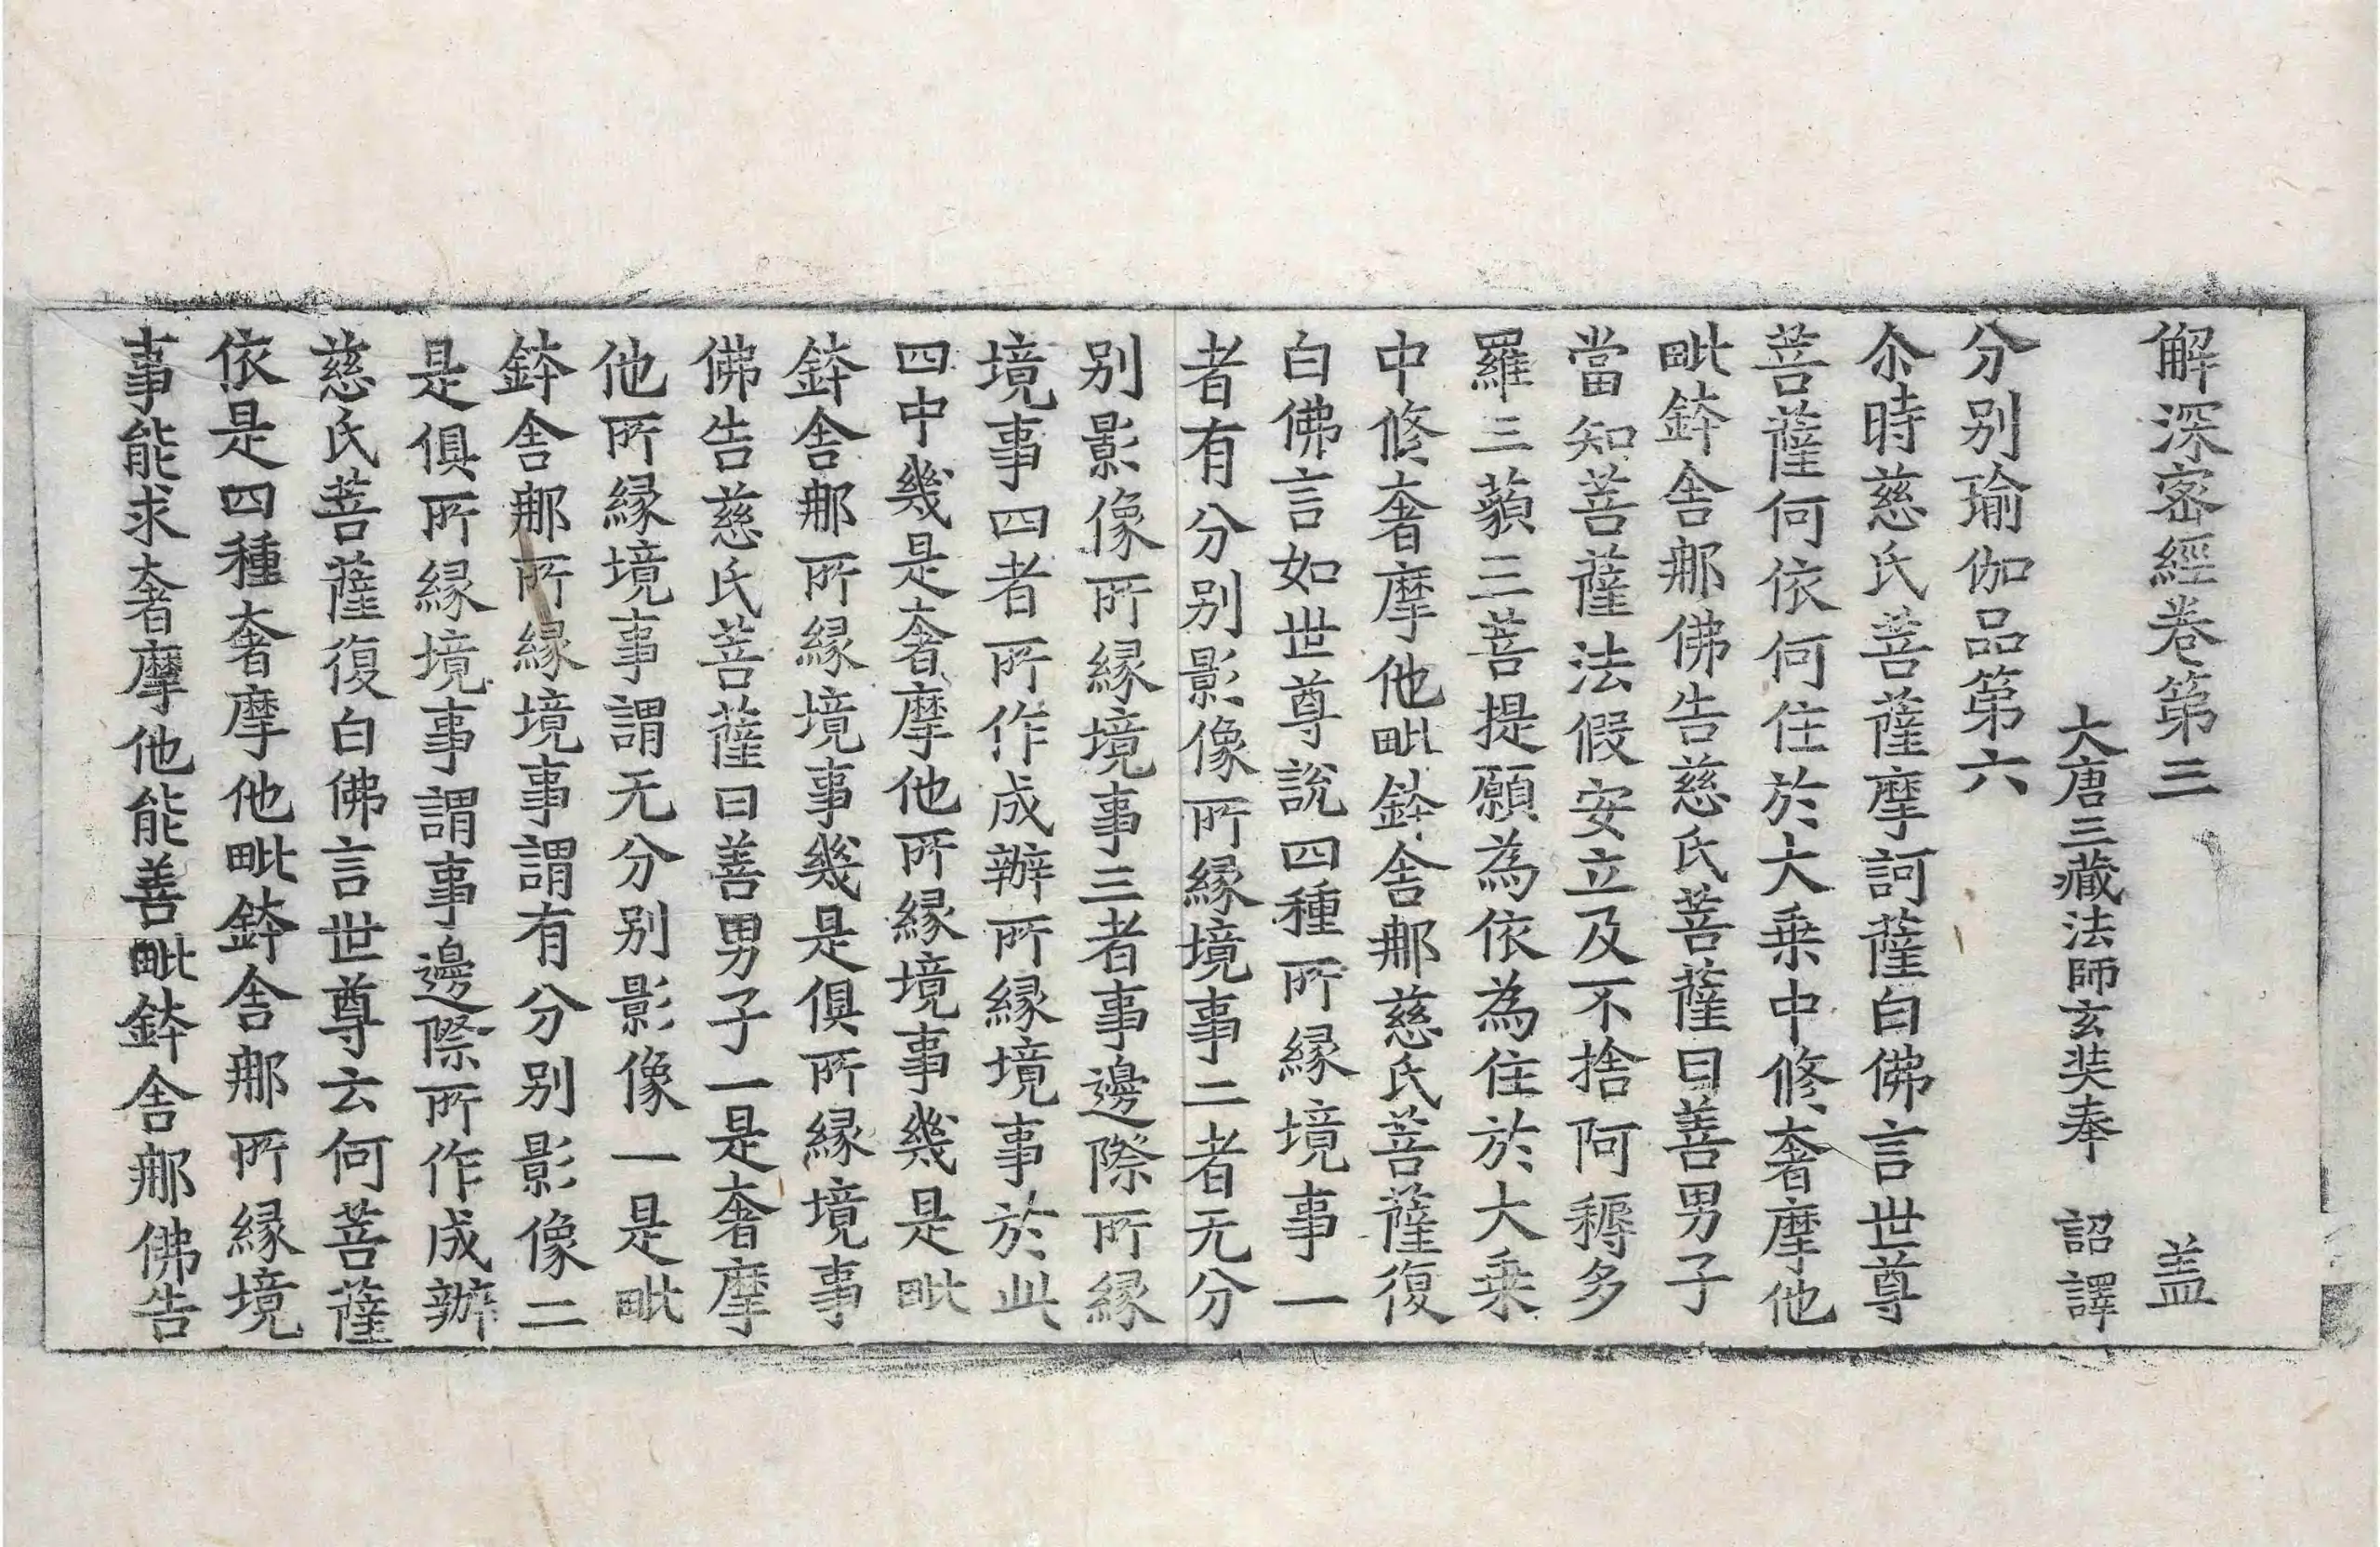 解深密經卷第三　盖
大唐三藏法師玄奘奉　詔譯
分别瑜伽品第六
尒時慈氏菩薩摩訶薩白佛言世尊
菩薩何依何住於大乗中修奢摩他
毗鉢舍那佛告慈氏菩薩曰善男子
當知菩薩法假安立及不捨阿耨多
羅三藐三菩提願為依為住於大乗
中修奢摩他毗鉢舍那慈氏菩薩復
白佛言如世尊說四種所縁境事一
者有分别影像所縁境事二者无分
别影像所縁境事三者事邊際所縁
境事四者所作成辦所縁境事於此
四中幾是奢摩他所縁境事幾是毗
鉢舍那所縁境事幾是俱所縁境事
佛告慈氏菩薩曰善男子一是奢摩
他所縁境事謂无分别影像一是毗
鉢舍那所縁境事謂有分别影像二
是俱所縁境事謂事邊際所作成辦
慈氏菩薩復白佛言世尊云何菩薩
依是四種奢摩他毗鉢舍那所縁境
事能求奢摩他能善毗鉢舍那佛告